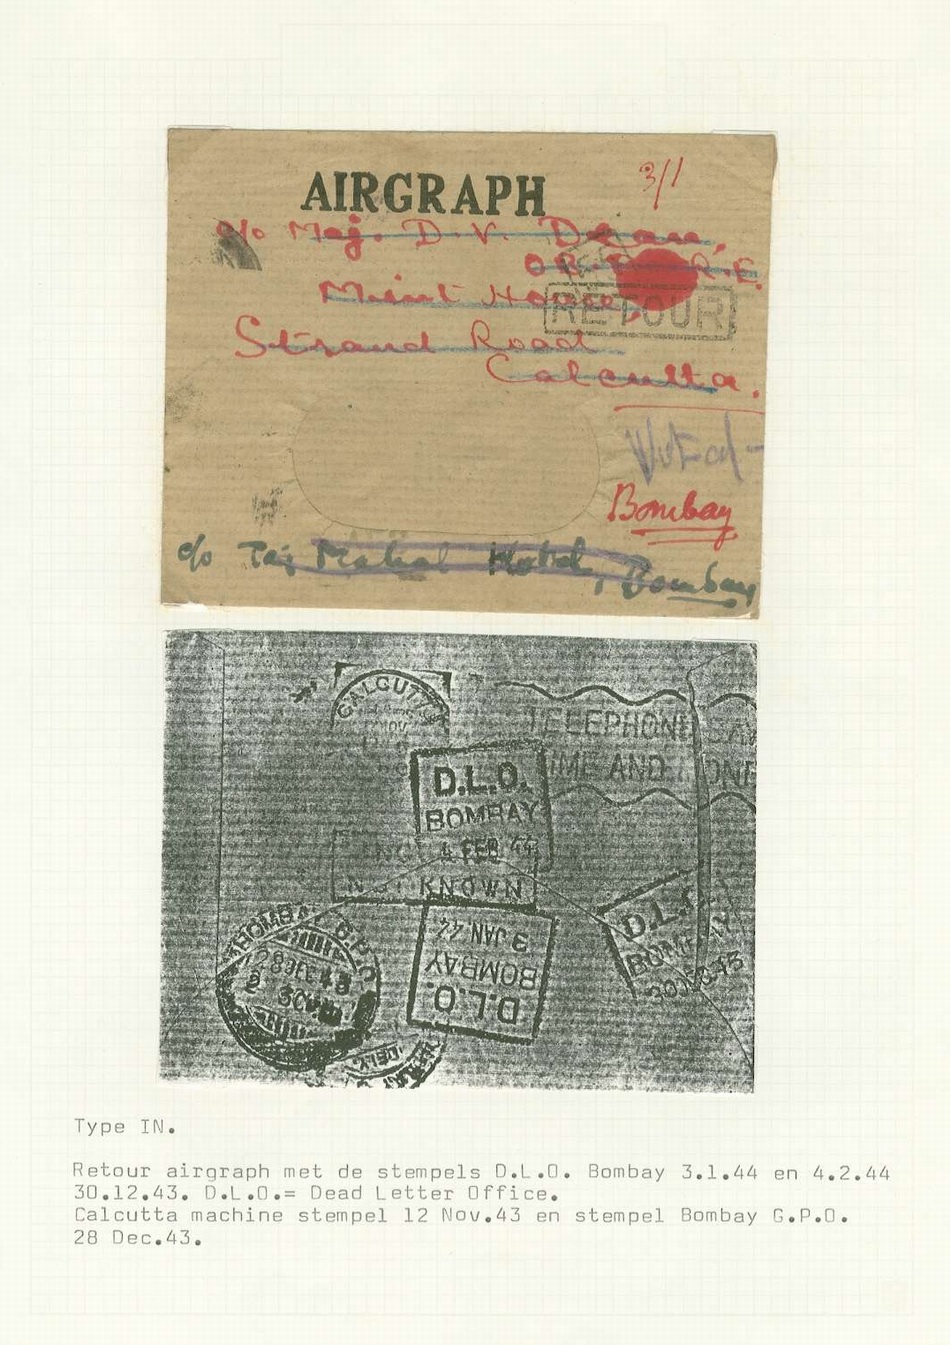 AIRGRAPH
3/1
c/o Maj. D. V.
R.E.
Mint House,
RETOUR
Strand Road
Calcutta.
Bombay
c/o Taj Mahal Hotel, Bombay
CALCUTTA
NOV
TELEPHONE SAV
TIME AND
D.L.O.
BOMBAY
4 FEB 44
NOT KNOWN
D.L.O.
BOMBAY
3 JAN 44
D.L.
BOM
30 DEC 43
BOMBAY G.P.O.
28 DEC 43
2 30
DELY.
Type IN.
Retour airgraph met de stempels D.L.O. Bombay 3.1.44 en 4.2.44
30.12.43. D.L.O.= Dead Letter Office.
Calcutta machine stempel 12 Nov.43 en stempel Bombay G.P.O.
28 Dec.43.